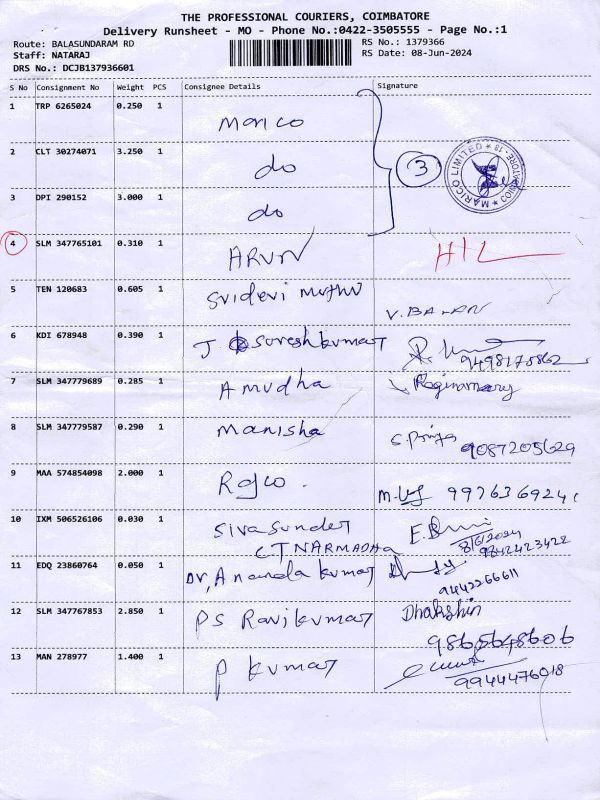 THE PROFESSIONAL COURIERS, COIMBATORE
Delivery Runsheet - MO - Phone No.:0422-3505555 - Page No.:1
Route: BALASUNDARAM RD
RS No.: 1379366
Staff: NATARAJ
RS Date: 08-Jun-2024
DRS No.: DCJB137936601
S No Consignment No Weight PCS Consignee Details Signature
1 TRP 6265024 0.250 1 Marico
2 CLT 30274071 3.250 1 do 3 MARICO LIMITED
3 DPI 290152 3.000 1 do
4 SLM 347765101 0.310 1 ARUN HIL
5 TEN 120683 0.605 1 Sridevi V. BALAN
6 KDI 678948 0.390 1 J Sureshkumar 9498175862
7 SLM 347779689 0.285 1 Amudha
8 SLM 347779587 0.290 1 Manisha 9087205629
9 MAA 574854098 2.000 1 997636924
10 IXM 506526106 0.030 1 Sivasunder 8/6/2024
CT NARMADHA 9842423422
11 EDQ 23860764 0.050 1 Dr, Ananda kumar 9442266611
12 SLM 347767853 2.850 1 PS Ravikumar Dhakshin
9865648606
13 MAN 278977 1.400 1 P kumar 9944476018